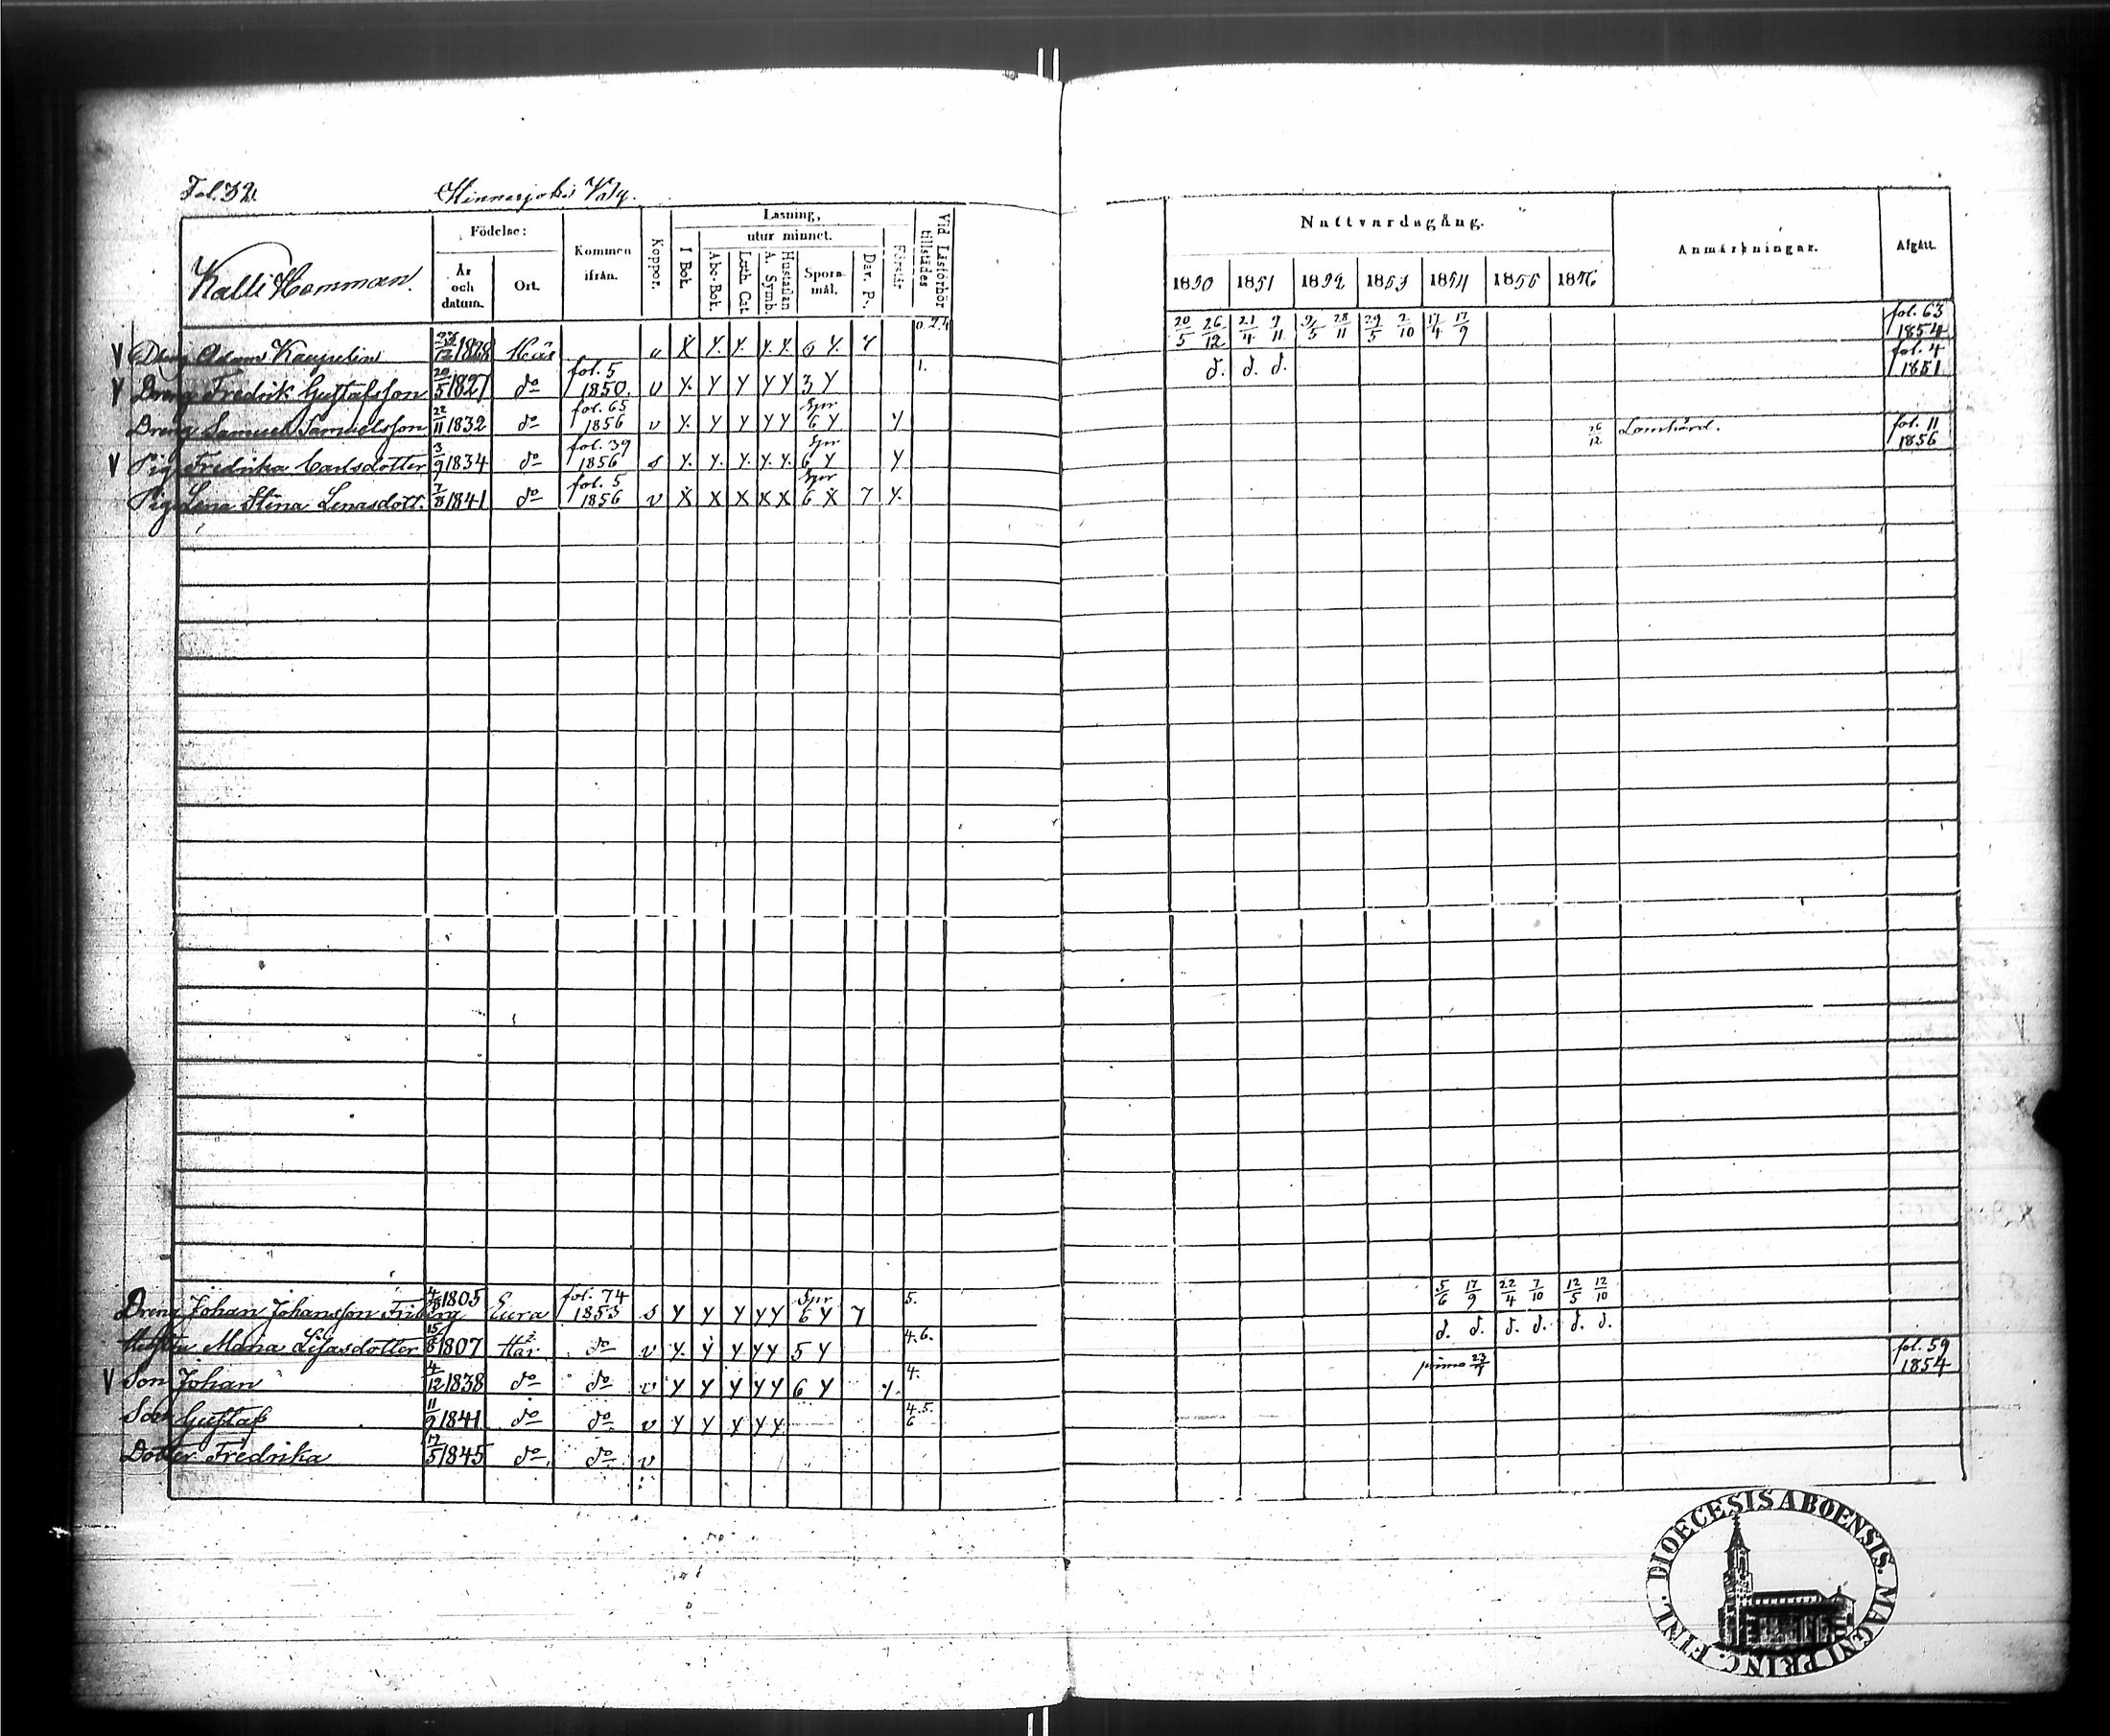 Fol. 32. Hinnerjoki
Kalli Hemman.
Födelse:
År och datum.
Ort.
Kommen ifrån.
Koppor.
Läsning,
I Bok.
utur minnet.
Abc-Bok.
Luth. Cat.
Hustaflan A. Symb.
Spörs-mål.
Dav. Ps.
Förstår
Vid Läsförhör tillstädes
Nattvardsgång.
1850 1851 1852 1853 1854 1855 1856
Anmärkningar.
Afgått.
V Dreng Adam 12 1828 Här X Y. Y. Y. Y. 6 Y. 7 20/5 26/12 21/4 9/11 9/5 28/11 29/5 2/10 17/4 17/9 fol. 63 1854
V Dreng Fredrik Gustafsson 20/5 1827 do fol. 5 1850. v Y. Y Y Y Y 3 Y 1. d. d. d. fol. 4 1851
Dreng Samuel Samuelsson 22/11 1832 do fol. 65 1856 v Y. Y Y Y Y Spr 6 Y Y 26/12 fol. 11 1856
V Pig. Fredrika Carlsdotter 3/9 1834 do fol. 39 1856 s Y. Y. Y. Y. Y. Spr 6 Y Y
Pig. Lena Stina Lenasdott. 7/8 1841 do fol. 5 1856 v X X X X X Spr 6 X 7 Y.
Dreng Johan Johansson Friberg 1805 Eura fol. 74 1853 s Y Y Y Y Y Spr 6 Y 7 5. 5/6 17/9 22/4 7/10 12/5 12/10
Hustru Maria Lisasdotter 15/8 1807 Här do v Y. Y Y Y Y 5 Y 4. 6. d. d. d. d. d. d.
V Son Johan 4/12 1838 do do v Y Y Y Y Y 6 Y Y. 4. primo 23/7 fol. 59 1854
Son Gustaf 11/9 1841 do do v Y Y Y Y Y 4. 5. 6
Dotter Fredrika 17/5 1845 do do v
DIOECESIS ABOENSIS. MAGNI PRINC. FINL.